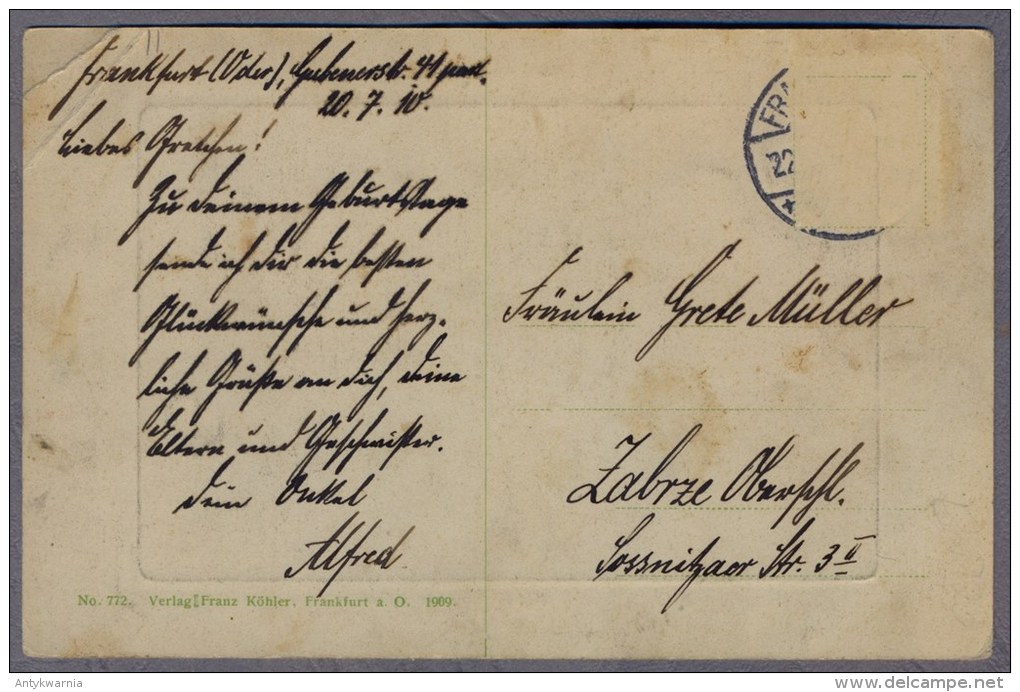 Frankfurt (Oder), Gubenerstr. 41 part.
20. 7. 10.
Liebes Gretchen!
Zu deinem Geburtstage
sende ich dir die besten
Glückwünsche und herz-
liche Grüße an dich, deine
Eltern und Geschwister.
Dein Onkel
Alfred
FRA
22
Fräulein Grete Müller
Zabrze Oberschl.
Sossnitzaer Str. 3 II
No. 772. Verlag Franz Köhler, Frankfurt a. O. 1909.
Antykwarnia
http://www.delcampe.net